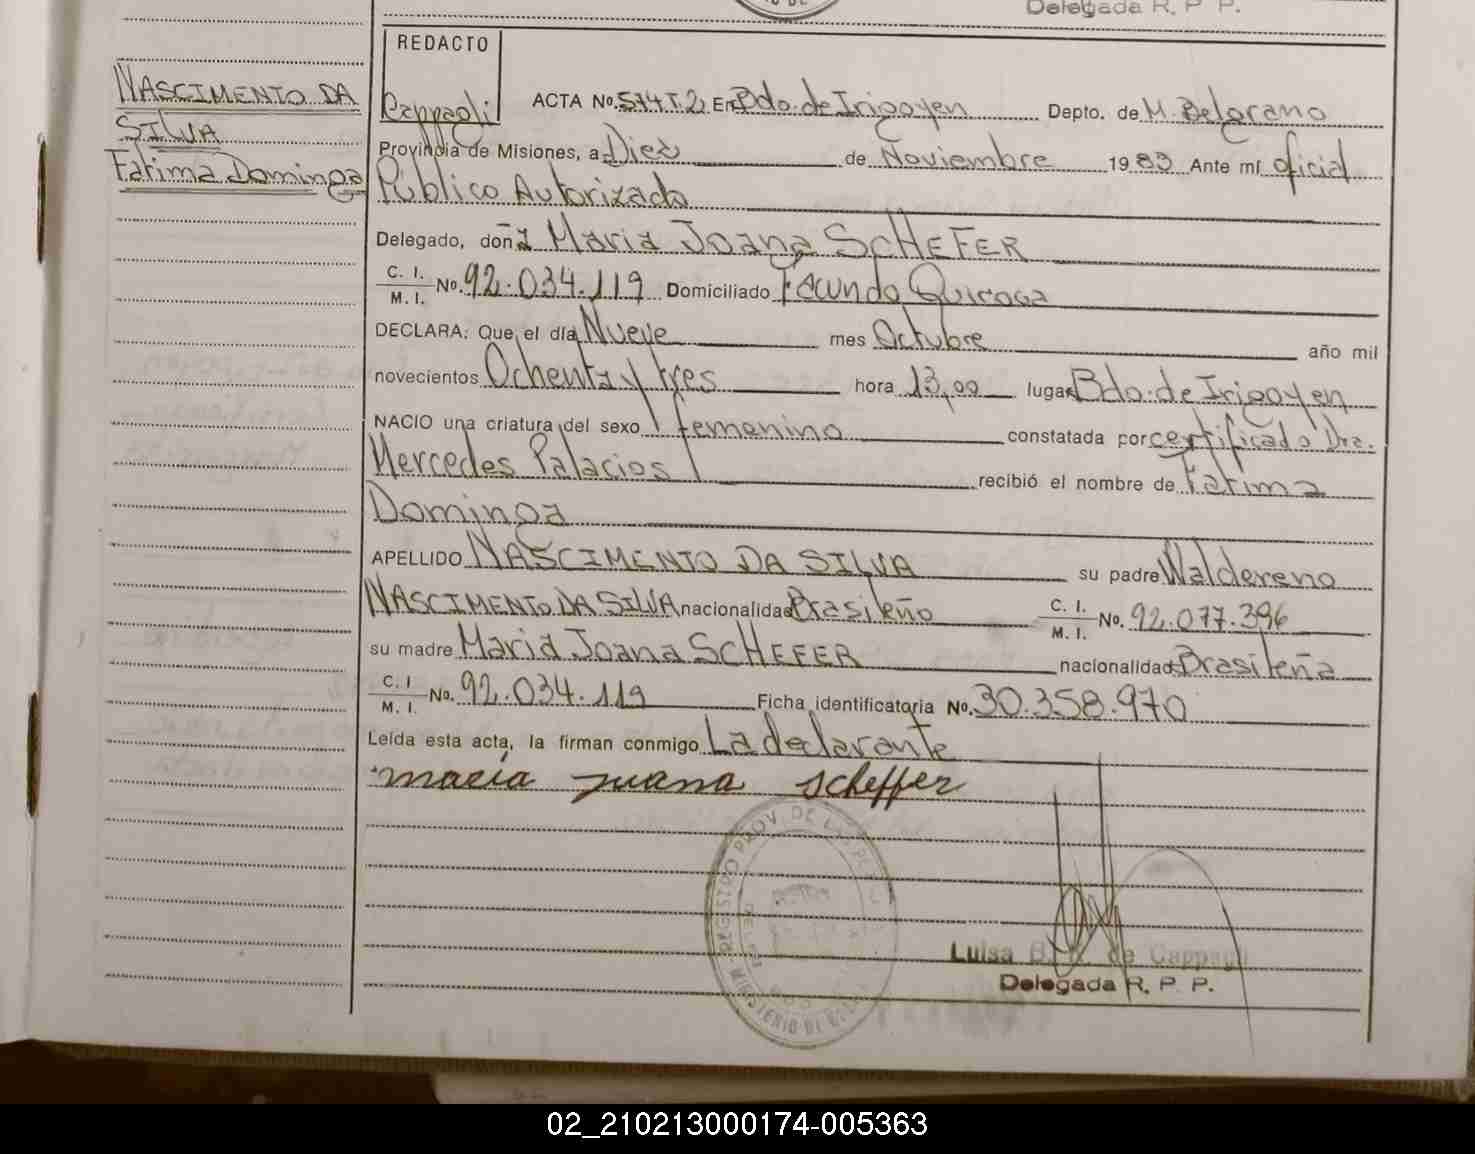 Delegada R. P. P.
REDACTO
NASCIMENTO DA
SILVA
Fátima Dominga
Cappagli
ACTA No. 574 T.2 En Bdo. de Irigoyen Depto. de M. Belgrano
Provincia de Misiones, a Diez de Noviembre 1983 Ante mí oficial
Público Autorizado
Delegado, doña María Joana SCHEFER
C. I.
M. I. No. 92.034.119 Domiciliado Facundo Quiroga
DECLARA: Que el día Nueve mes Octubre año mil
novecientos Ochenta y tres hora 13,00 lugar Bdo. de Irigoyen
NACIO una criatura del sexo femenino constatada por certificado Dra.
Mercedes Palacios recibió el nombre de Fátima
Dominga
APELLIDO NASCIMENTO DA SILVA su padre Waldereno
NASCIMENTO DA SILVA nacionalidad Brasileño C. I.
M. I. No. 92.077.396
su madre María Joana SCHEFER nacionalidad Brasileña
C. I
M. I. No. 92.034.119 Ficha identificatoria No. 30.358.970
Leída esta acta, la firman conmigo La declarante
maria juana scheffer
REGISTRO PROV. DE LAS PERS
MINISTERIO DE
Luisa B. de Cappagli
Delegada R. P. P.
02_210213000174-005363